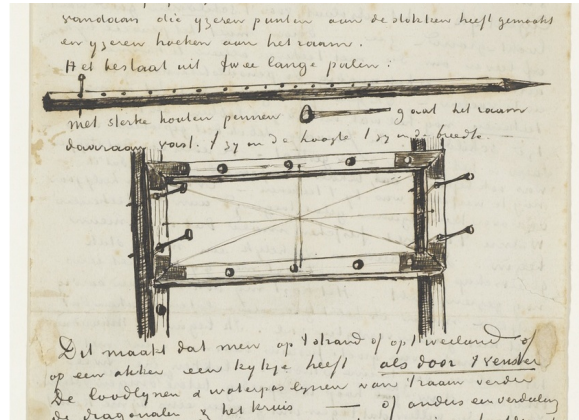 vandaan die yzeren punten aan de stokken heeft gemaakt
en yzeren hoeken aan het raam.
Het bestaat uit twee lange palen:
met sterke houten pennen gaat het raam
daaraan vast. 't zy in de hoogte 't zy in de breedte.
Dit maakt dat men op 't strand of op 't weiland of
op een akker een kykje heeft als door 't venster
De loodlynen & waterpas lynen van 't raam verder
de diagonalen & het kruis — of anders een verdeeling